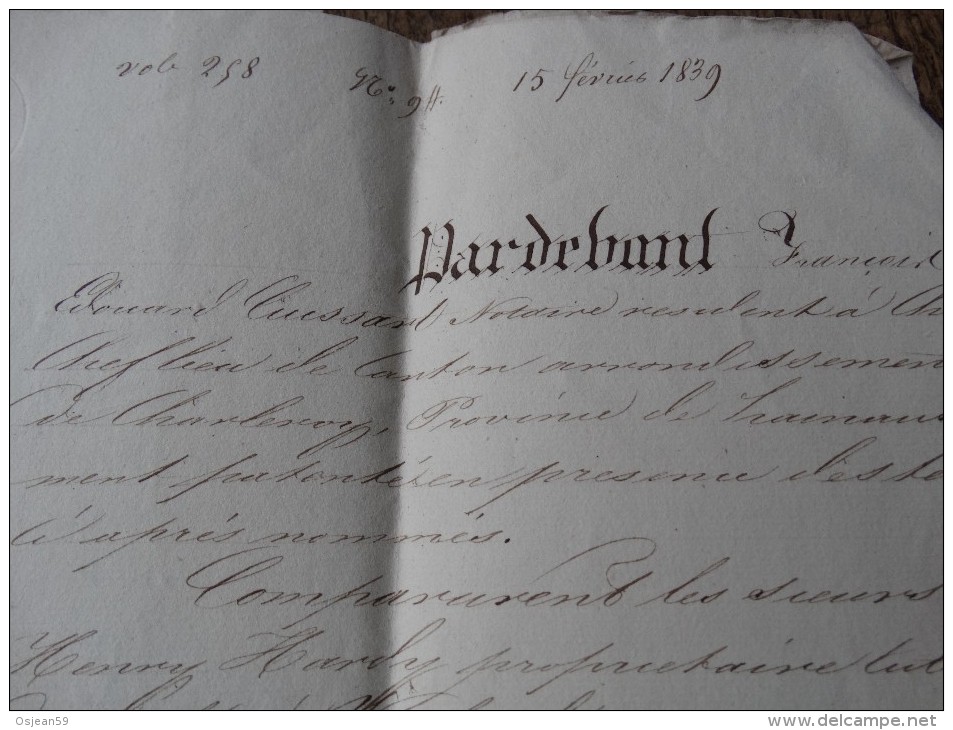 vol. 258 N.° 94. 15 février 1839
Pardevant François
Edouard Cussart Notaire residant à Ch
Chef lieu de Canton arrondissement
de Charleroy, Province de hainau
ment patenté en presence des te
ci après nommés.
Comparurent les sieurs
Henry Hardy propriétaire
Osjean59
www.delcampe.net